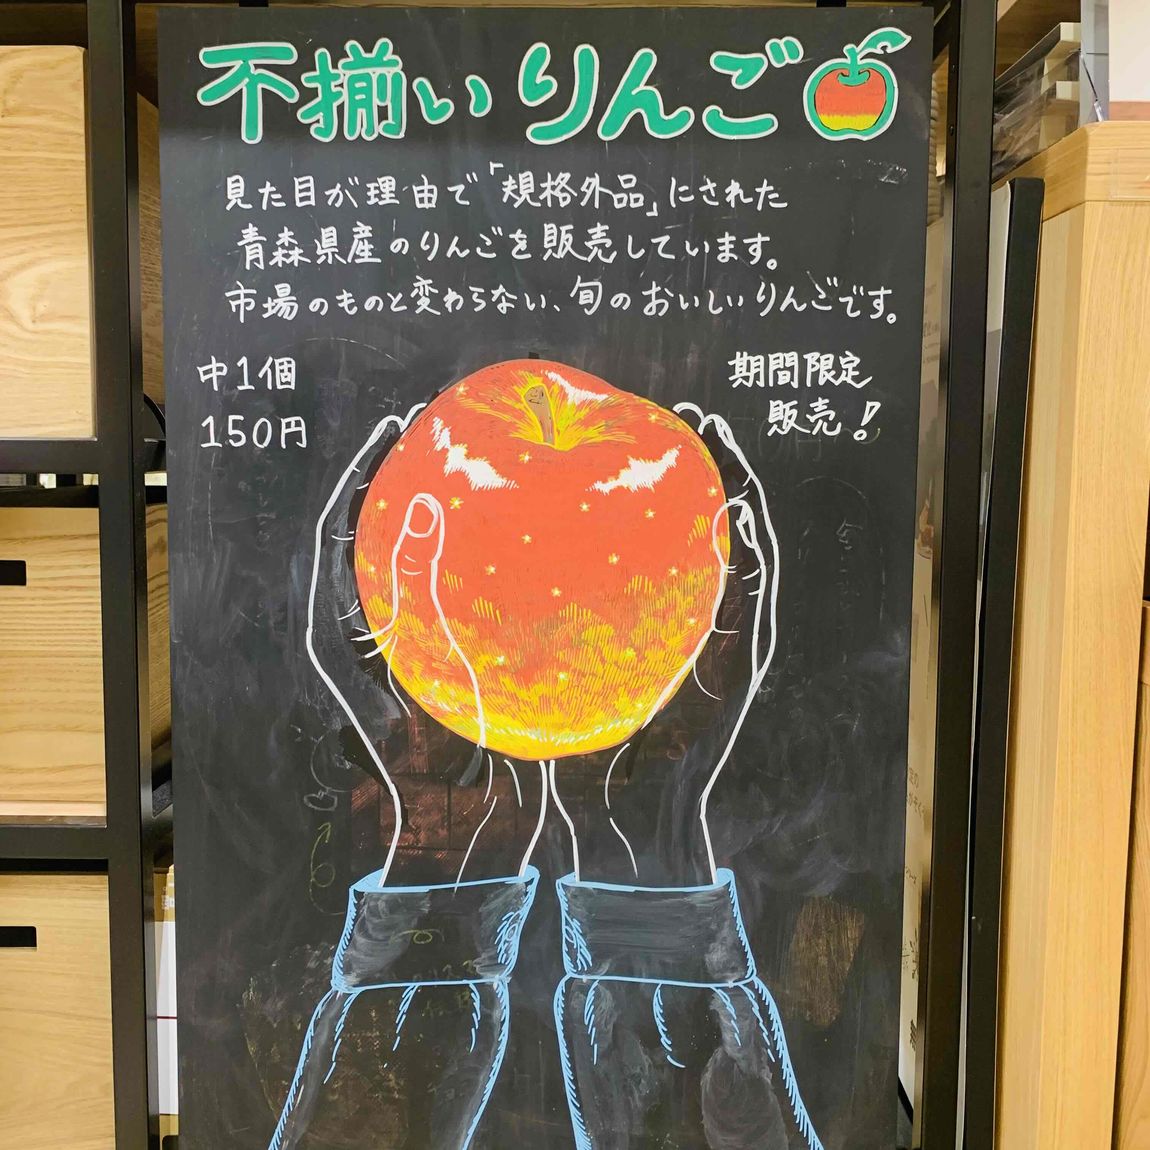 不揃いりんご
見た目が理由で「規格外品」にされた
青森県産のりんごを販売しています。
市場のものと変わらない、旬のおいしいりんごです。
中1個
150円
期間限定
販売!